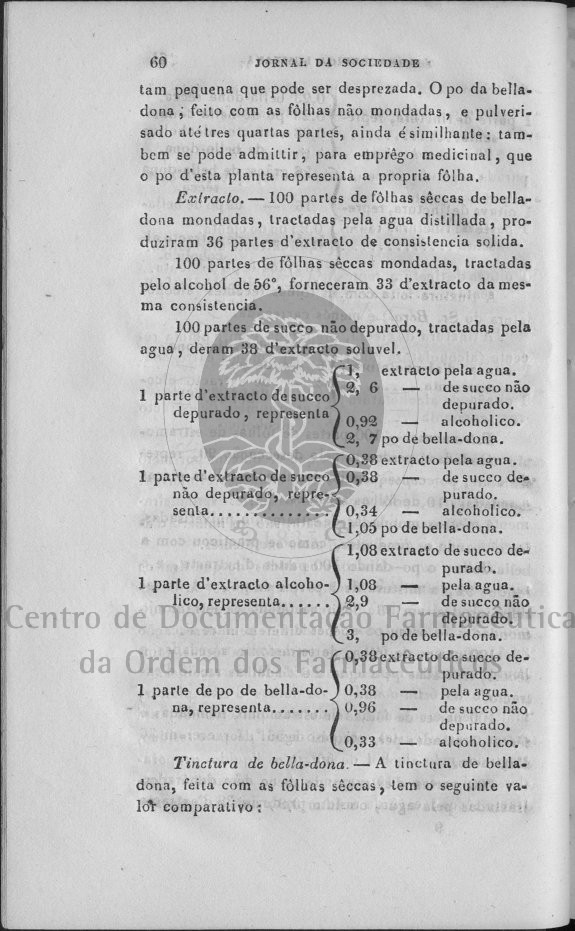 60 JORNAL DA SOCIEDADE
tam pequena que pode ser desprezada. O po da bella-
dona, feito com as fôlhas não mondadas, e pulveri-
sado até tres quartas partes, ainda é similhante: tam-
bem se póde admittir, para emprêgo medicinal, que
o po d'esta planta representa a propria fôlha.
Extracto. — 100 partes de fôlhas sêccas de bella-
dona mondadas, tractadas pela agua distillada, pro-
duziram 36 partes d'extracto de consistencia solida.
100 partes de fôlhas sêccas mondadas, tractadas
pelo alcohol de 56°, forneceram 33 d'extracto da mes-
ma consistencia.
100 partes de succo não depurado, tractadas pela
agua, deram 38 d'extracto soluvel.
1 parte d'extracto de succo
depurado, representa
1, extracto pela agua.
2, 6 — de succo não
depurado.
0,92 — alcoholico.
2, 7 po de bella-dona.
1 parte d'extracto de succo
não depurado, repre-
senta..............
0,38 extracto pela agua.
0,38 — de succo de-
purado.
0,34 — alcoholico.
1,05 po de bella-dona.
1 parte d'extracto alcoho-
lico, representa......
1,08 extracto de succo de-
purado.
1,08 — pela agua.
2,9 — de succo não
depurado.
3, po de bella-dona.
1 parte de po de bella-do-
na, representa.......
0,38 extracto de succo de-
purado.
0,38 — pela agua.
0,96 — de succo não
depurado.
0,33 — alcoholico.
Tinctura de bella-dona. — A tinctura de bella-
dona, feita com as fôlhas sêccas, tem o seguinte va-
lor comparativo:
Centro de Documentação Farmacêutica
da Ordem dos Farmacêuticos